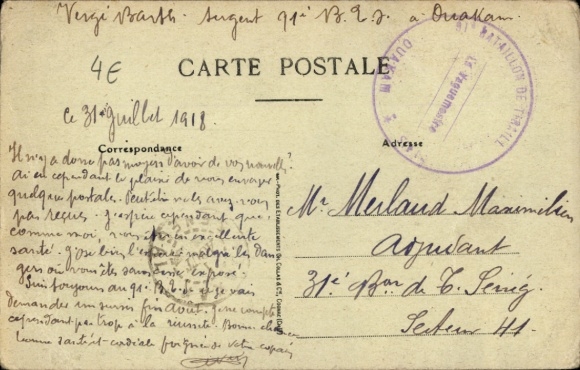 Vergi Barth. Sergent 91e B.T.S. à Ouakam
4€
CARTE POSTALE
ce 31 Juillet 1918.
Correspondance
Adresse
OUAKAM
BATAILLON DE TIRAILL
Le Vaguemestre
Il n'y a donc pas moyen d'avoir de vos nouvelles
ai eu cependant le plaisir de vous envoyer
quelque postale. Peut être ne les avez vous
pas reçues. J'espère cependant que
comme moi, vous êtes en excellente
santé. J'ose bien l'espérer malgré les dan
gers où vous êtes sans cesse exposé.
Suis toujours au 91e B.T.S. et je vais
demander un sursis fin Août. Je ne compte
cependant pas trop à la réussite. Bonne chance
bonne santé et cordiale poignée de votre copain
Mr Merlaud Maximilien
Adjudant
31e Bon de T. Sénég.
Secteur 41-